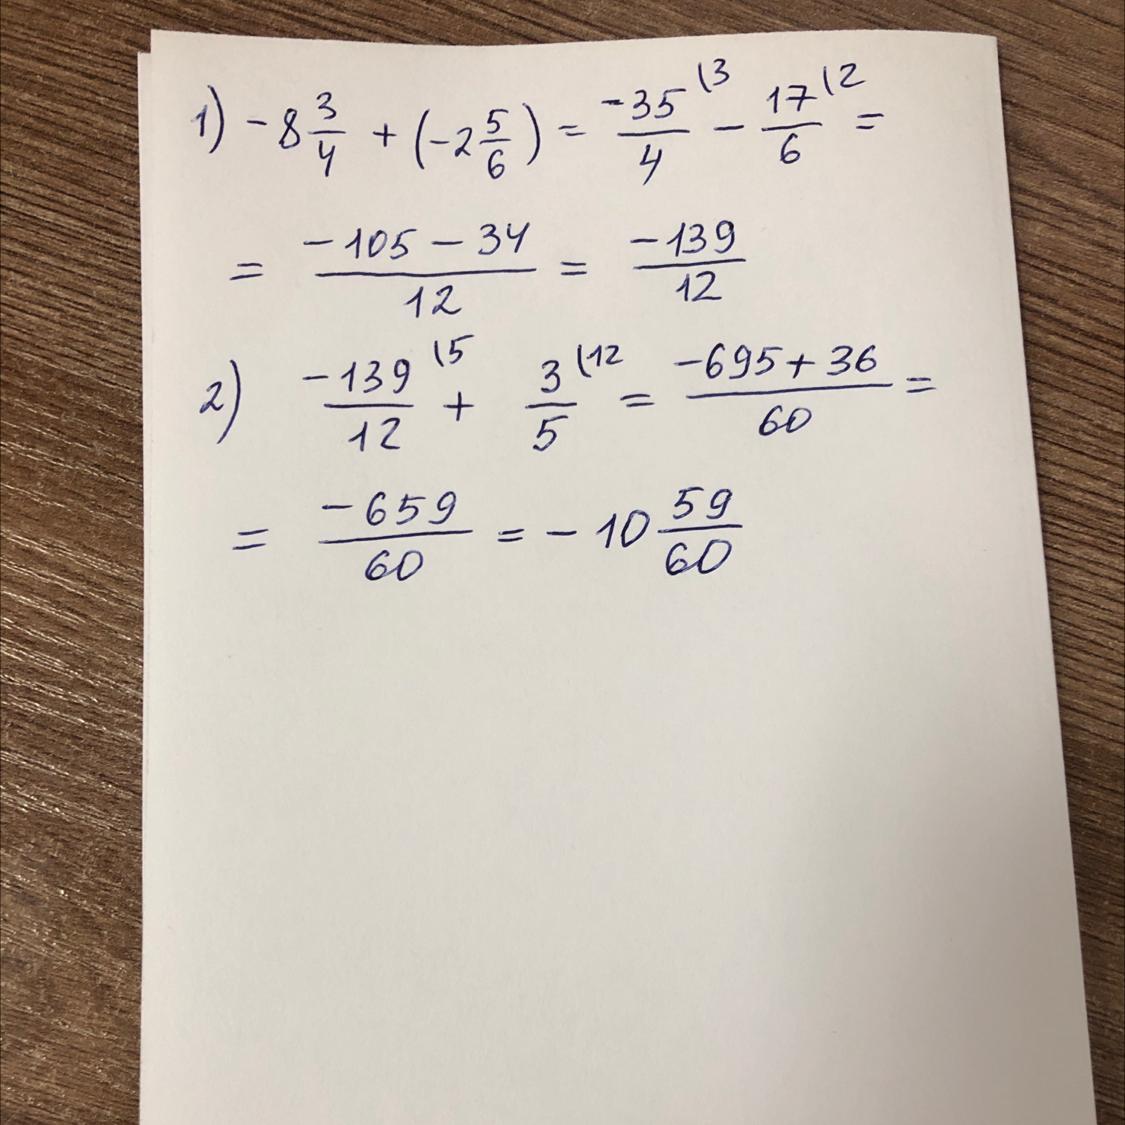 1) -8 3/4 + (-2 5/6) = -35/4 \3 - 17/6 \2 =
= -105 - 34/12 = -139/12
2) -139/12 \5 + 3/5 \12 = -695 + 36/60 =
= -659/60 = -10 59/60